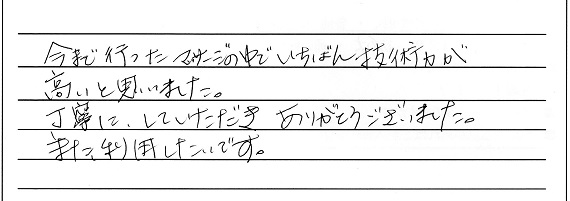 今まで行ったマッサージの中でいちばん技術力が
高いと思いました。
丁寧に、していただき ありがとうございました。
また、利用したいです。